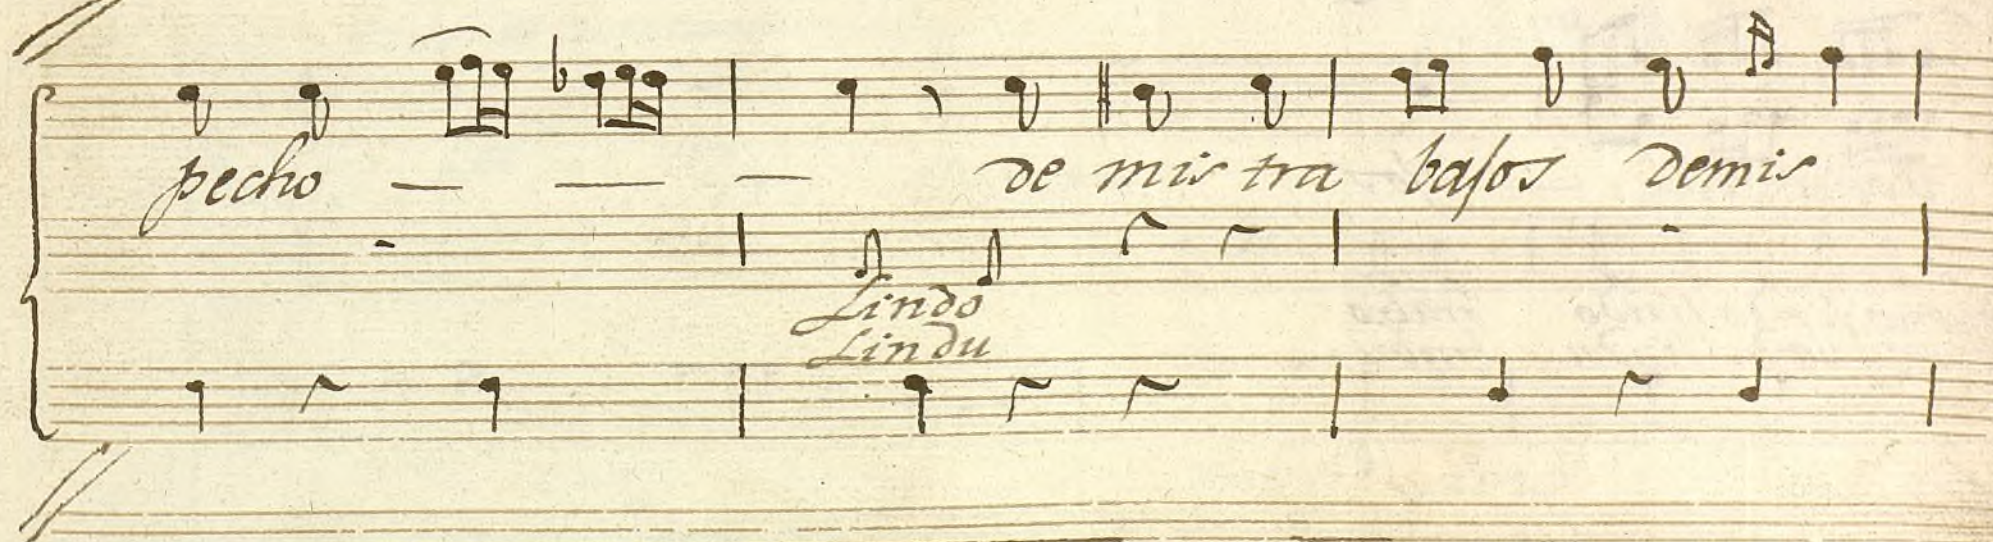 pecho — — — de mis tra bajos demis
Lindo
Lindu